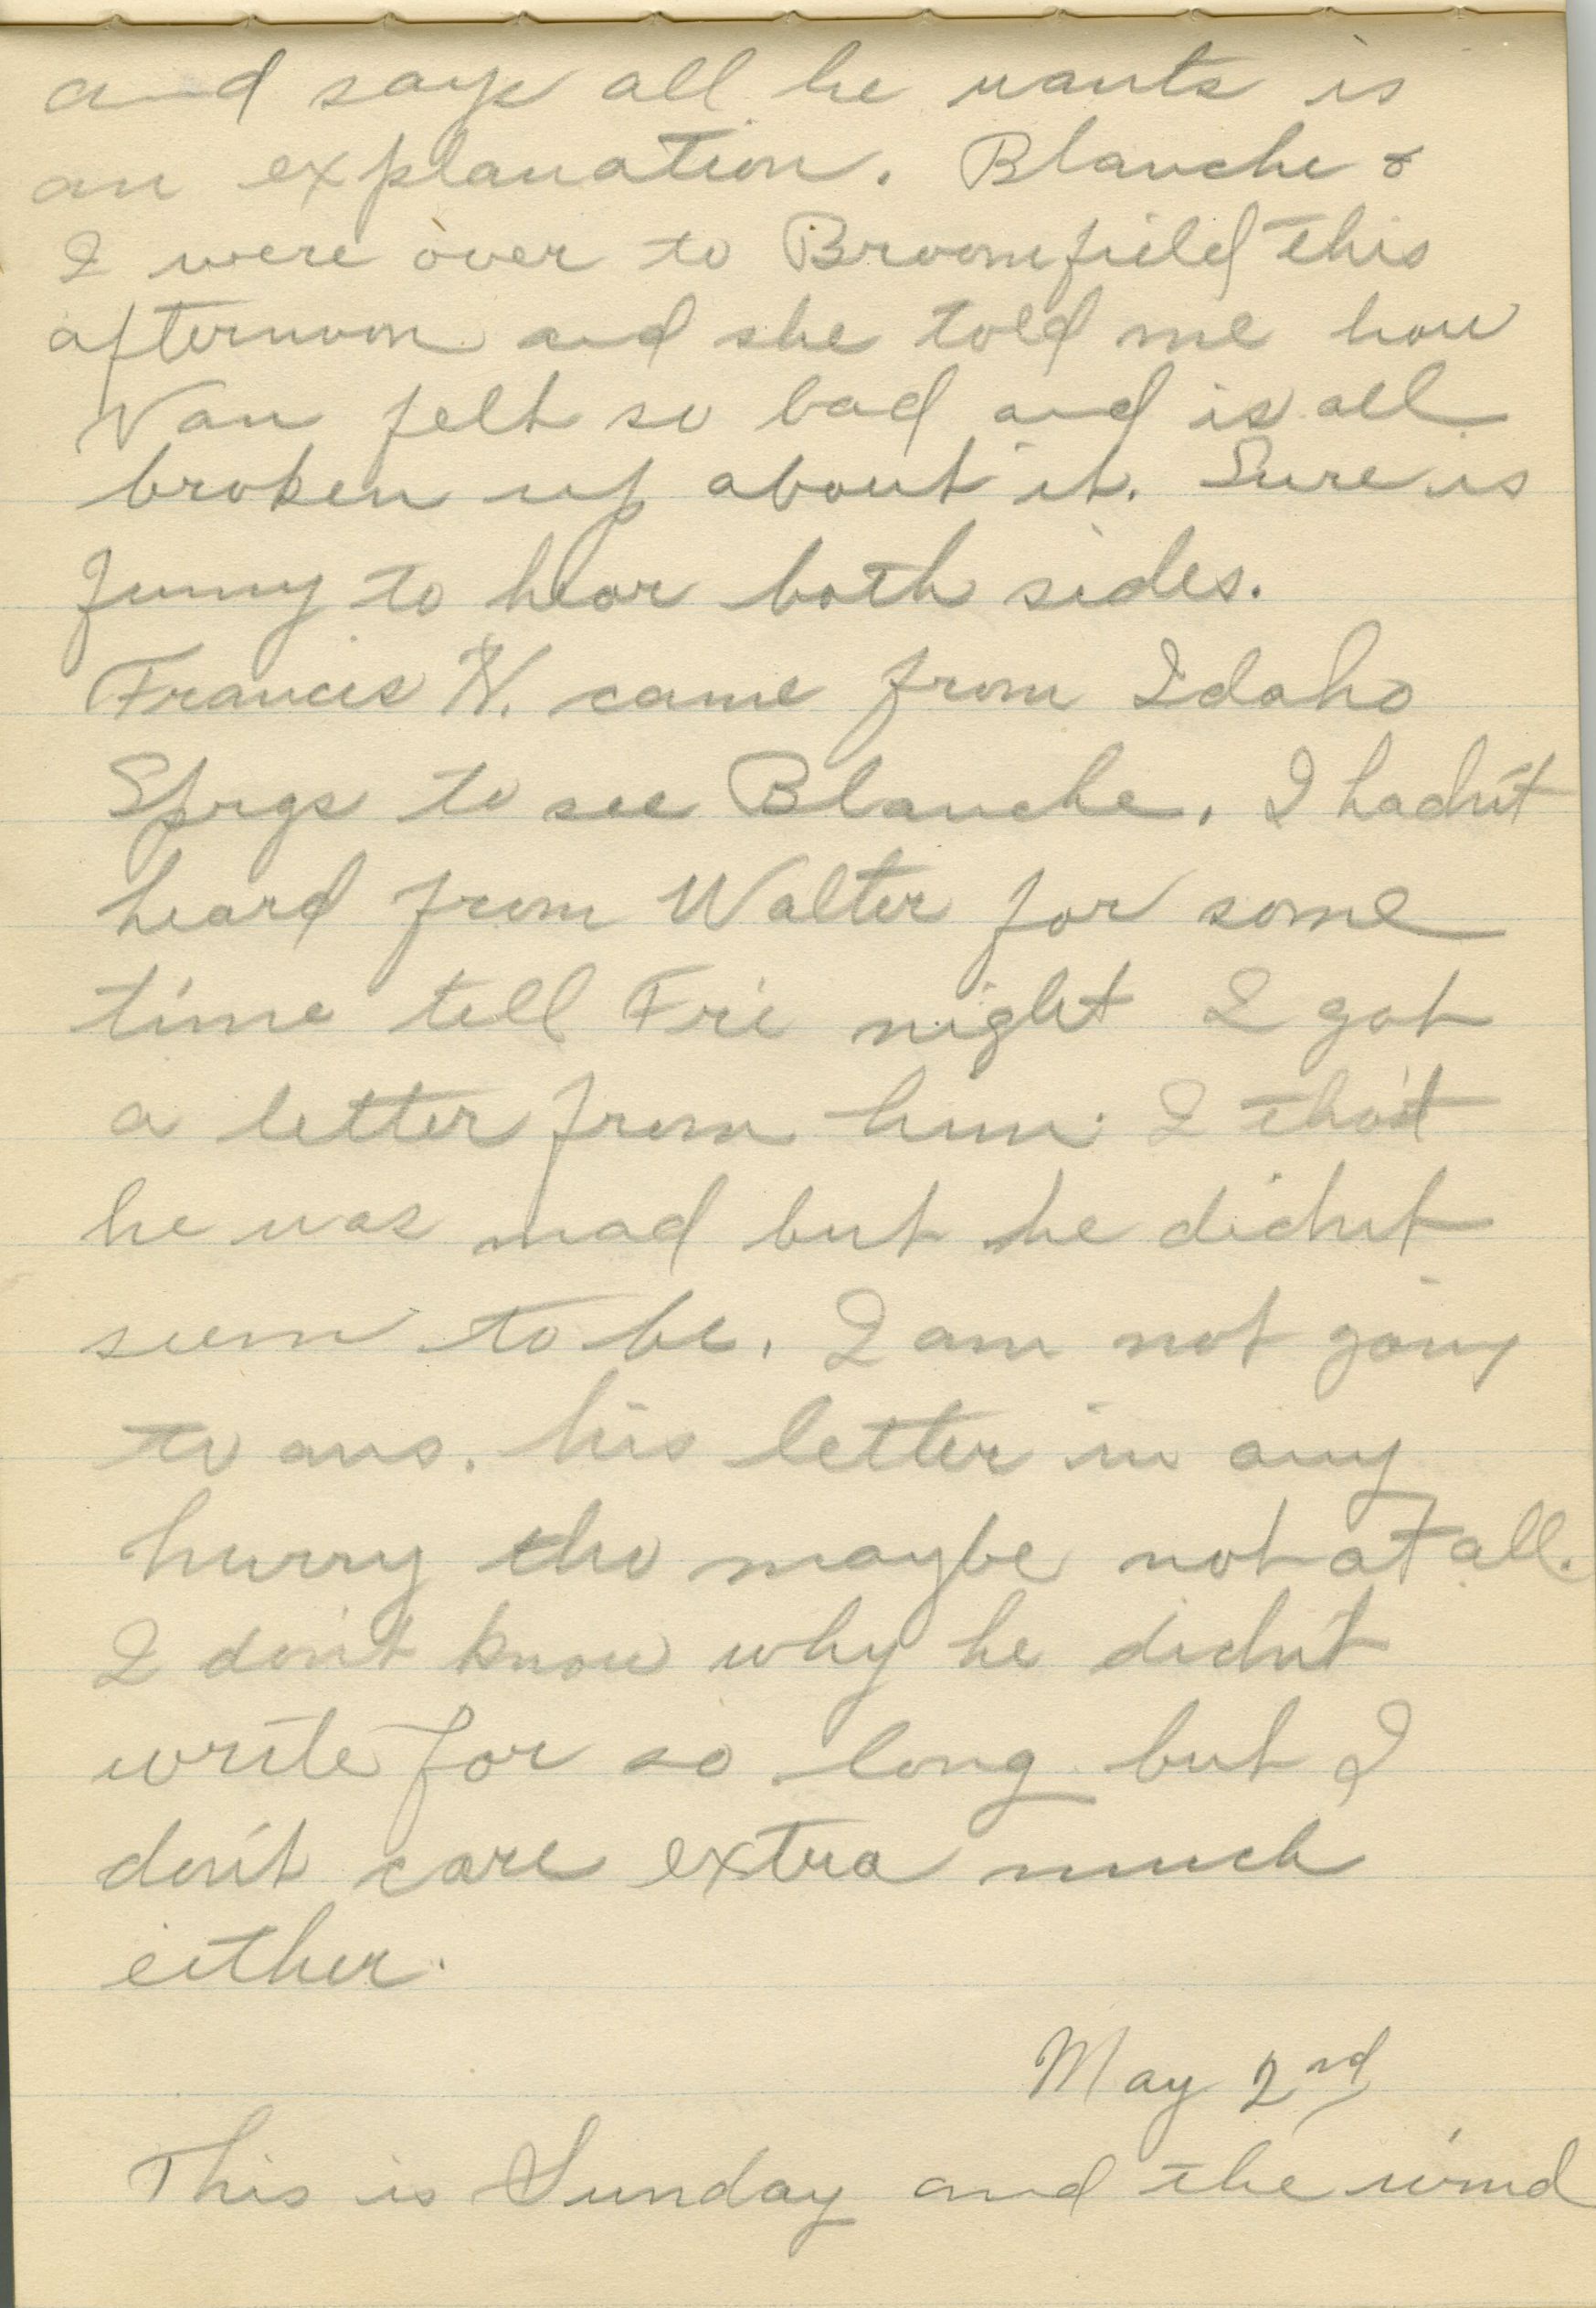 and says all he wants is
an explanation. Blanche &
I were over to Broomfield this
afternoon and she told me how
Van felt so bad and is all
broken up about it. Sure is
funny to hear both sides.
Francis W. came from Idaho
Sprgs to see Blanche. I hadn't
heard from Walter for some
time till Fri night I got
a letter from him. I tho't
he was mad but he didnt
seem to be. I am not going
to ans. his letter in any
hurry tho maybe not at all.
I don't know why he didn't
write for so long but I
don't care extra much
either.
May 2nd
This is Sunday and the wind